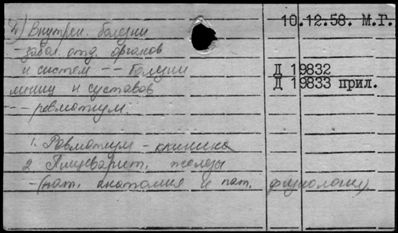 4) Внутрен. болезни 10.12.58. М.Г.
забол. отд. органов
и систем -- Болезни Д 19832
мышц и суставов Д 19833 прил.
-- ревматизм.
1. Ревматизм - клиника
2. Пищеварит. железы
- (пат. анатомия и пат. физиология)